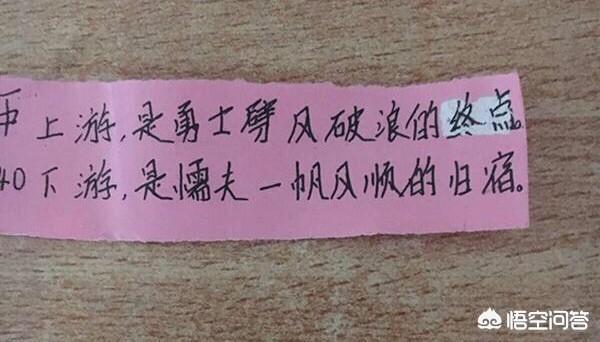 上游,是勇士劈风破浪的终点。
40下游,是懦夫一帆风顺的归宿。
悟空问答